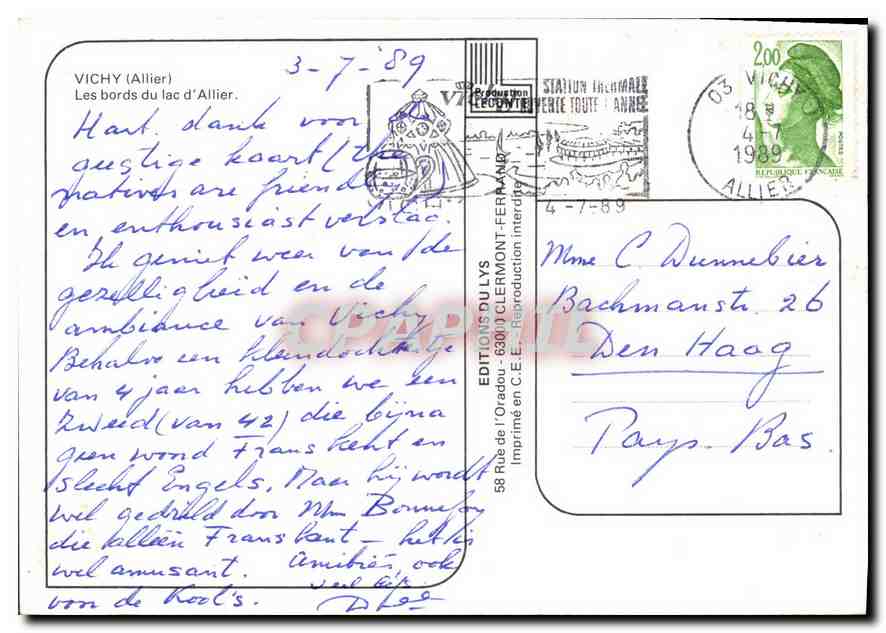 VICHY (Allier)
Les bords du lac d'Allier.
3-7-'89
Hart. dank voor
geestige kaart (the
natives are friendly
en enthousiast verslag.
Ik geniet weer van de
gezelligheid en de
ambiance van Vichy.
Behalve een kleindochtertje
van 4 jaar hebben we een
Zweed (van 42) die bijna
geen woord Frans kent en
slecht Engels. Maar hij wordt
wel gedrild door Mme Bonnefoy
die alleen Frans kent - het is
wel amusant. Amitiés, ook
van de Kool's. veel liefs
Production
LECONTE
EDITIONS DU LYS
58 Rue de l'Oradou - 63000 CLERMONT-FERRAND
Imprimé en C.E.E. Reproduction interdite
Vichy
STATION THERMALE
OUVERTE TOUTE L'ANNEE
4-7-89
03 VICHY
18
4-7
1989
ALLIER
2,00
POSTES
REPUBLIQUE FRANÇAISE
Mme C. Dunnebier
Bachmanstr. 26
Den Haag
Pays-Bas.
CPAPHIL